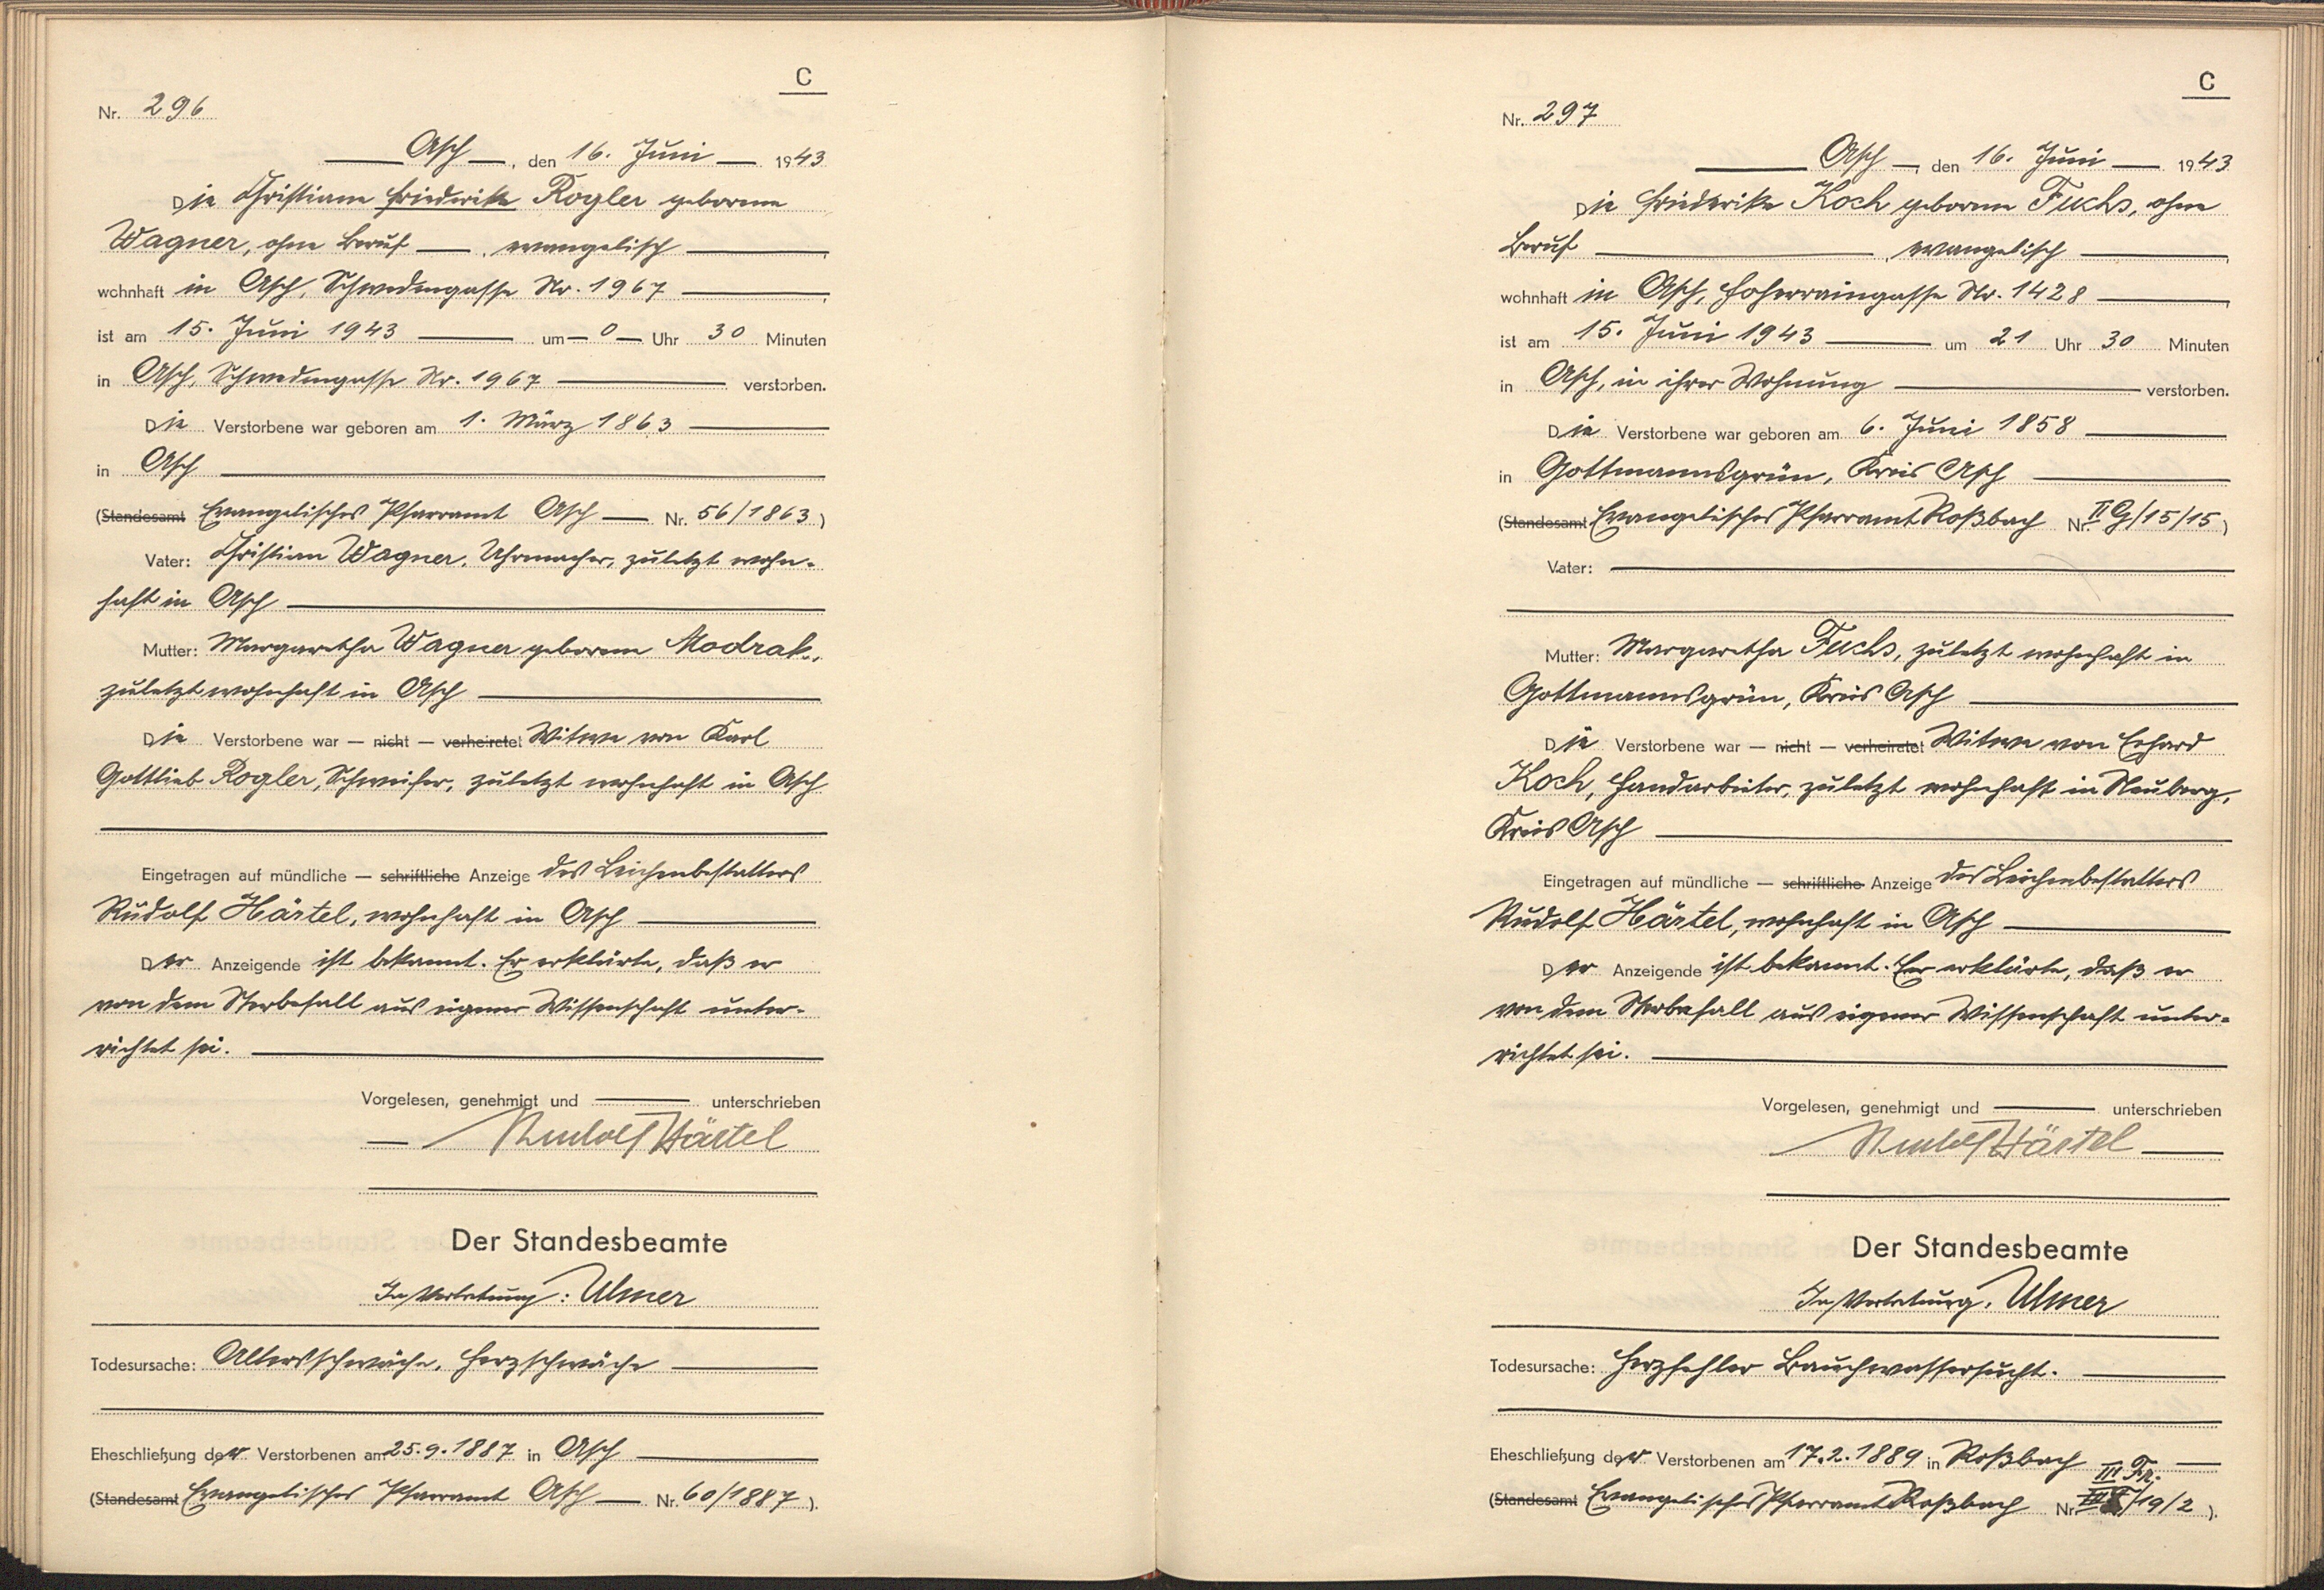 C
Nr. 296
Asch, den 16. Juni 1943
Die Christiane Friederike Rogler geborene
Wagner, ohne Beruf, evangelisch,
wohnhaft in Asch, Schwedengasse Nr. 1967,
ist am 15. Juni 1943 um 0 Uhr 30 Minuten
in Asch, Schwedengasse Nr. 1967 verstorben.
Die Verstorbene war geboren am 1. März 1863
in Asch
(Standesamt Evangelisches Pfarramt Asch Nr. 56/1863)
Vater: Christian Wagner, Uhrmacher, zuletzt wohn-
haft in Asch
Mutter: Margaretha Wagner geborene Modrak,
zuletzt wohnhaft in Asch
Die Verstorbene war — nicht — verheiratet Witwe von Karl
Gottlieb Rogler, Schweifer, zuletzt wohnhaft in Asch
Eingetragen auf mündliche — schriftliche Anzeige des Leichenbestatters
Rudolf Härtel, wohnhaft in Asch
Der Anzeigende ist bekannt. Er erklärte, daß er
von dem Sterbefall aus eigener Wissenschaft unter-
richtet sei.
Vorgelesen, genehmigt und unterschrieben
Rudolf Härtel
Der Standesbeamte
In Vertretung: Ulmer
Todesursache: Altersschwäche, Herzschwäche
Eheschließung der Verstorbenen am 25.9.1887 in Asch
(Standesamt Evangelisches Pfarramt Asch Nr. 60/1887).
C
Nr. 297
Asch, den 16. Juni 1943
Die Friederike Koch geborene Fuchs, ohne
Beruf, evangelisch,
wohnhaft in Asch, Hoherraingasse Nr. 1428,
ist am 15. Juni 1943 um 21 Uhr 30 Minuten
in Asch, in ihrer Wohnung verstorben.
Die Verstorbene war geboren am 6. Juni 1858
in Gottmannsgrün, Kreis Asch
(Standesamt Evangelisches Pfarramt Roßbach Nr. II G/15/15)
Vater:
Mutter: Margaretha Fuchs, zuletzt wohnhaft in
Gottmannsgrün, Kreis Asch
Die Verstorbene war — nicht — verheiratet Witwe von Erhard
Koch, Handarbeiter, zuletzt wohnhaft in Neuberg,
Kreis Asch
Eingetragen auf mündliche — schriftliche Anzeige des Leichenbestatters
Rudolf Härtel, wohnhaft in Asch
Der Anzeigende ist bekannt. Er erklärte, daß er
von dem Sterbefall aus eigener Wissenschaft unter-
richtet sei.
Vorgelesen, genehmigt und unterschrieben
Rudolf Härtel
Der Standesbeamte
In Vertretung: Ulmer
Todesursache: Herzfehler Bauchwassersucht.
Eheschließung der Verstorbenen am 17.2.1889 in Roßbach
(Standesamt Evangelisches Pfarramt Roßbach Nr. III Tr. /19/2).